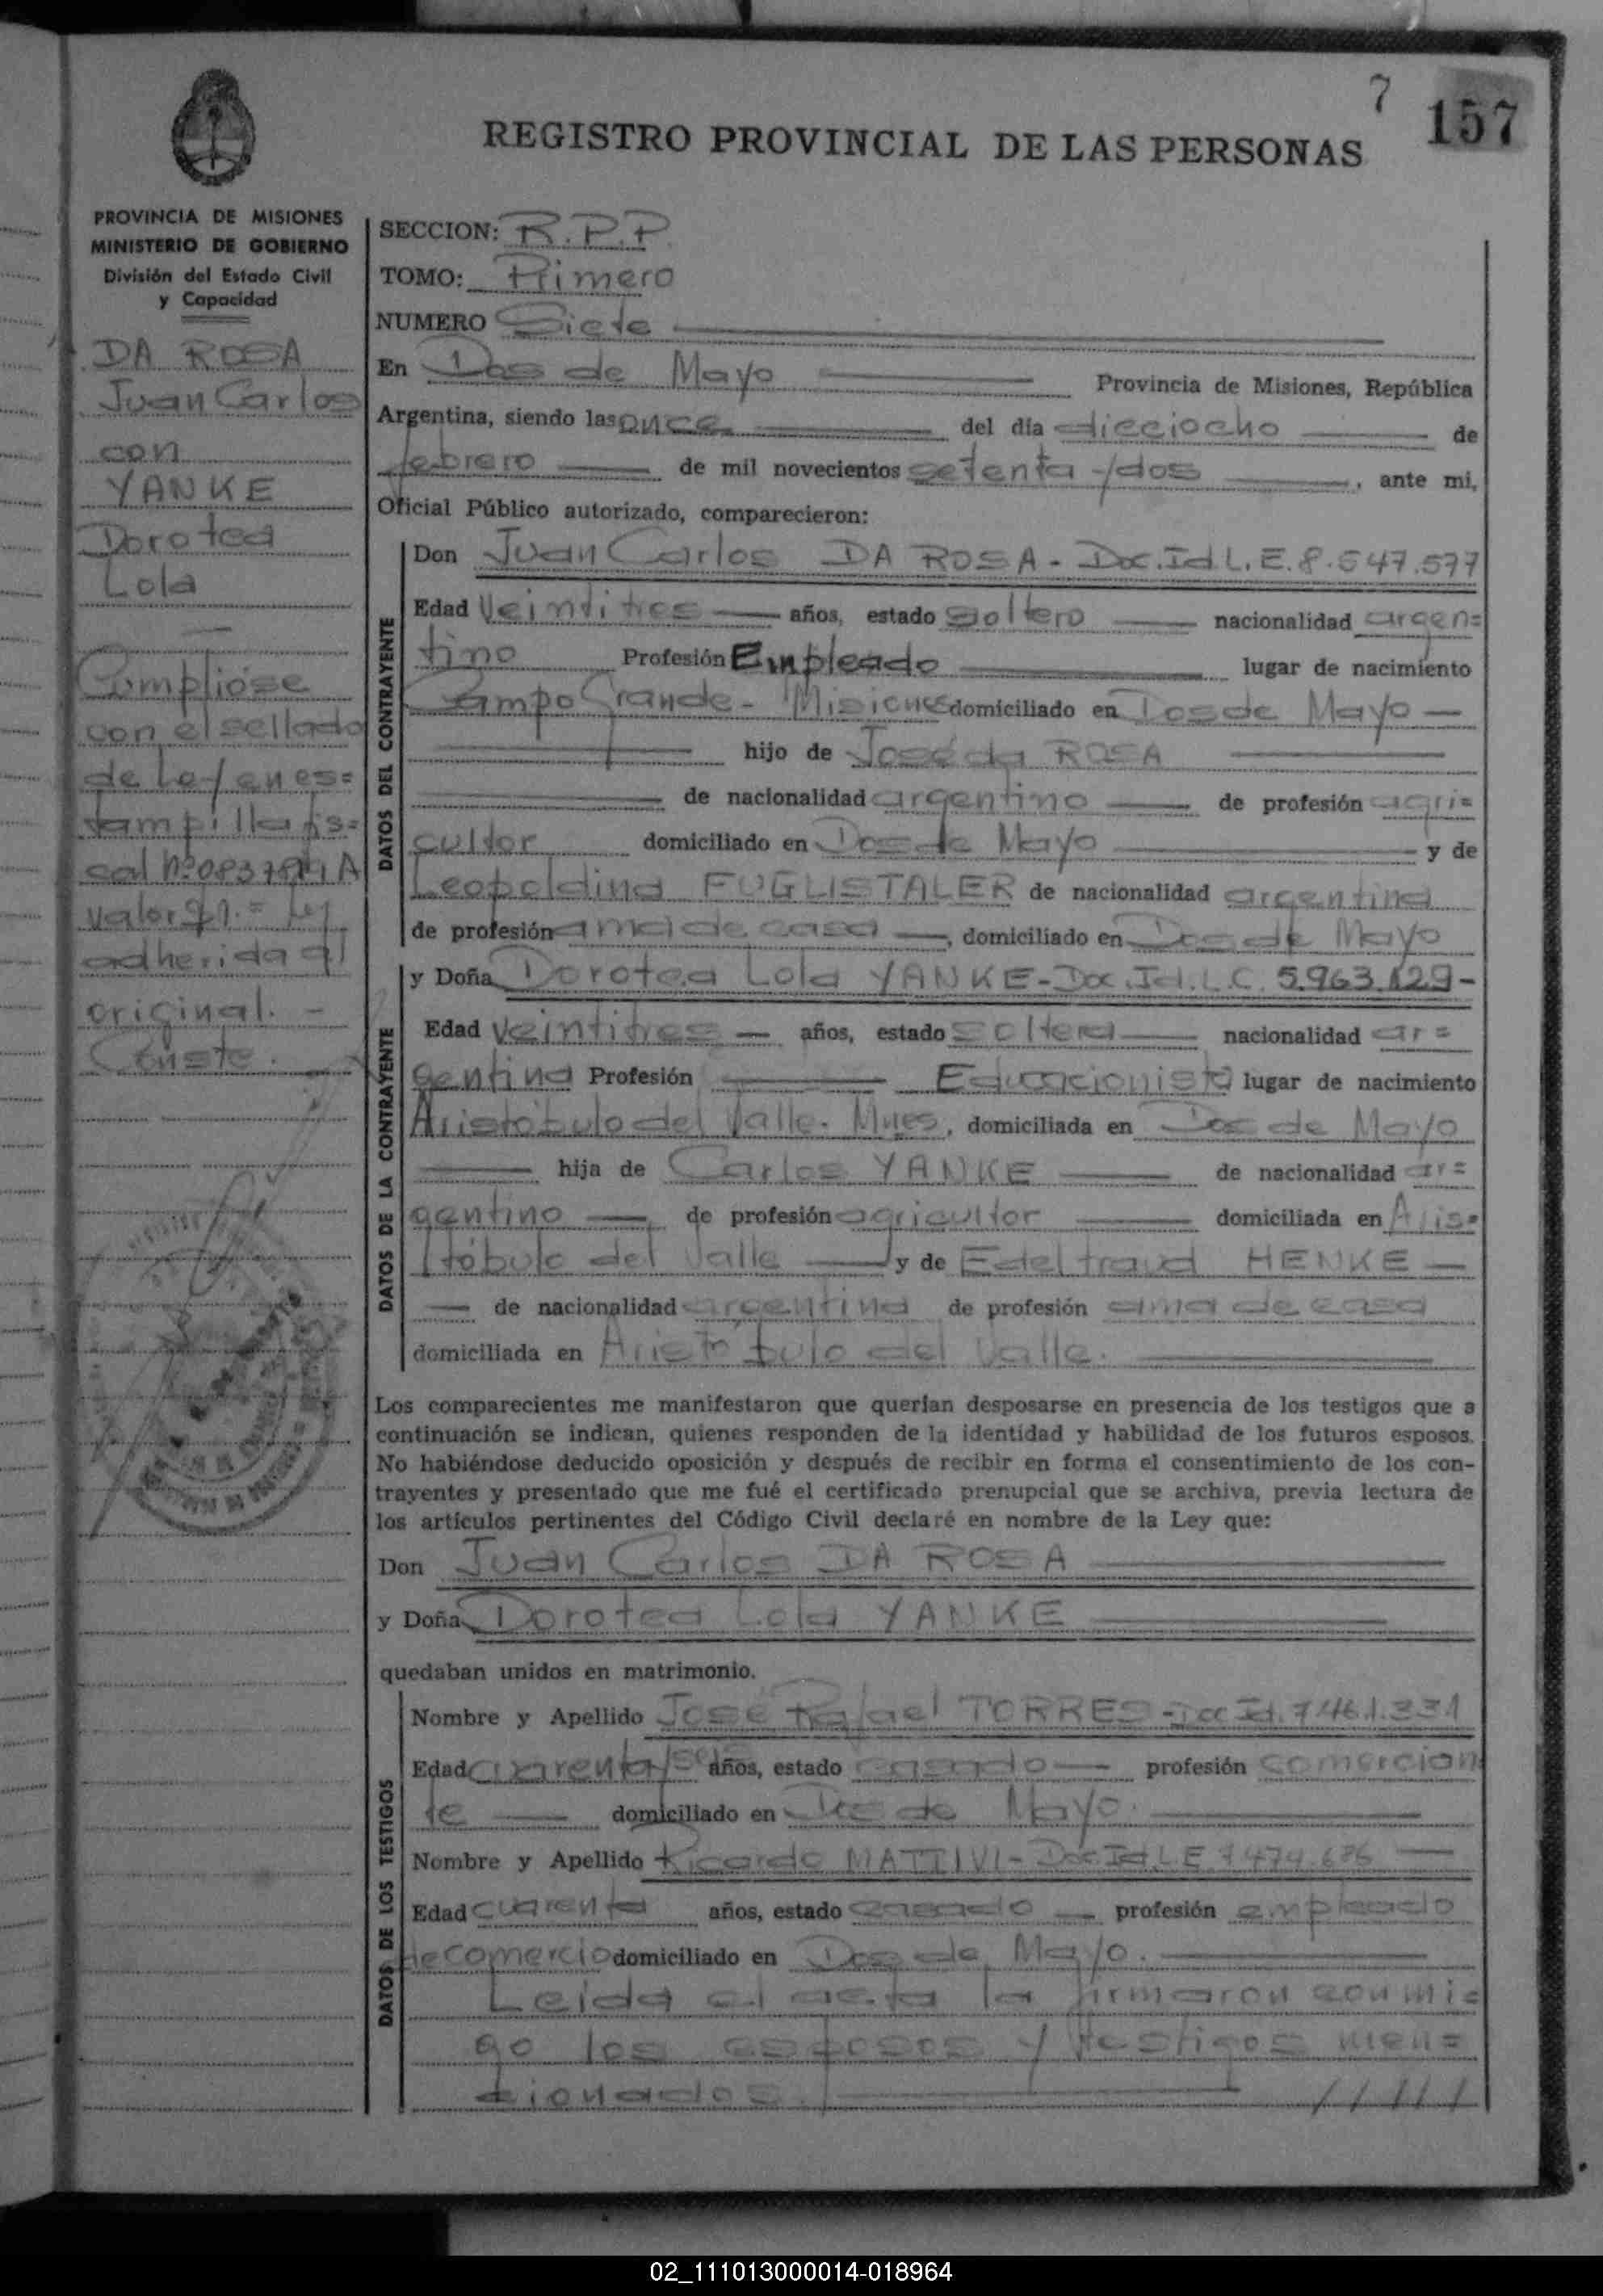 7
157
REGISTRO PROVINCIAL DE LAS PERSONAS
PROVINCIA DE MISIONES
MINISTERIO DE GOBIERNO
División del Estado Civil
y Capacidad
DA ROSA
Juan Carlos
con
YANKE
Dorotea
Lola
Cumplióse
con el sellado
de Ley en es=
tampilla fis=
cal Nº
valor
adherida al
original. -
Conste.
SECCION: R.P.P.
TOMO: Primero
NUMERO Siete
En Dos de Mayo Provincia de Misiones, República
Argentina, siendo las once del día dieciocho de
febrero de mil novecientos setenta y dos, ante mi,
Oficial Público autorizado, comparecieron:
DATOS DEL CONTRAYENTE
Don Juan Carlos DA ROSA - Doc.Id L.E. 8.547.577
Edad Veintitres años, estado soltero nacionalidad argen=
tino Profesión Empleado lugar de nacimiento
Campo Grande - Misiones domiciliado en Dos de Mayo —
hijo de José da ROSA
de nacionalidad argentino de profesión agri=
cultor domiciliado en Dos de Mayo y de
Leopoldina FUGLISTALER de nacionalidad argentina
de profesión ama de casa, domiciliado en Dos de Mayo
DATOS DE LA CONTRAYENTE
y Doña Dorotea Lola YANKE - Doc.Id. L.C. 5.963.129 -
Edad veintitres — años, estado soltera nacionalidad ar=
gentina Profesión Educacionista lugar de nacimiento
Aristóbulo del Valle. Mnes, domiciliada en Dos de Mayo
hija de Carlos YANKE de nacionalidad ar=
gentino de profesión agricultor domiciliada en Aris=
tóbulo del Valle y de Edeltraud HENKE —
de nacionalidad argentina de profesión ama de casa
domiciliada en Aristóbulo del Valle.
Los comparecientes me manifestaron que querían desposarse en presencia de los testigos que a
continuación se indican, quienes responden de la identidad y habilidad de los futuros esposos.
No habiéndose deducido oposición y después de recibir en forma el consentimiento de los con-
trayentes y presentado que me fué el certificado prenupcial que se archiva, previa lectura de
los artículos pertinentes del Código Civil declaré en nombre de la Ley que:
Don Juan Carlos DA ROSA
y Doña Dorotea Lola YANKE
quedaban unidos en matrimonio.
DATOS DE LOS TESTIGOS
Nombre y Apellido José Rafael TORRES - Doc Id. 7.461.331
Edad cuarenta y seis años, estado casado — profesión comercian
te domiciliado en Dos de Mayo.
Nombre y Apellido Ricardo MATTIVI - Doc.Id L.E 7.474.686
Edad cuarenta años, estado casado — profesión empleado
de comercio domiciliado en Dos de Mayo.
Leida el acta la firmaron conmi=
go los esposos y testigos men=
cionados. /////
02_111013000014-018964